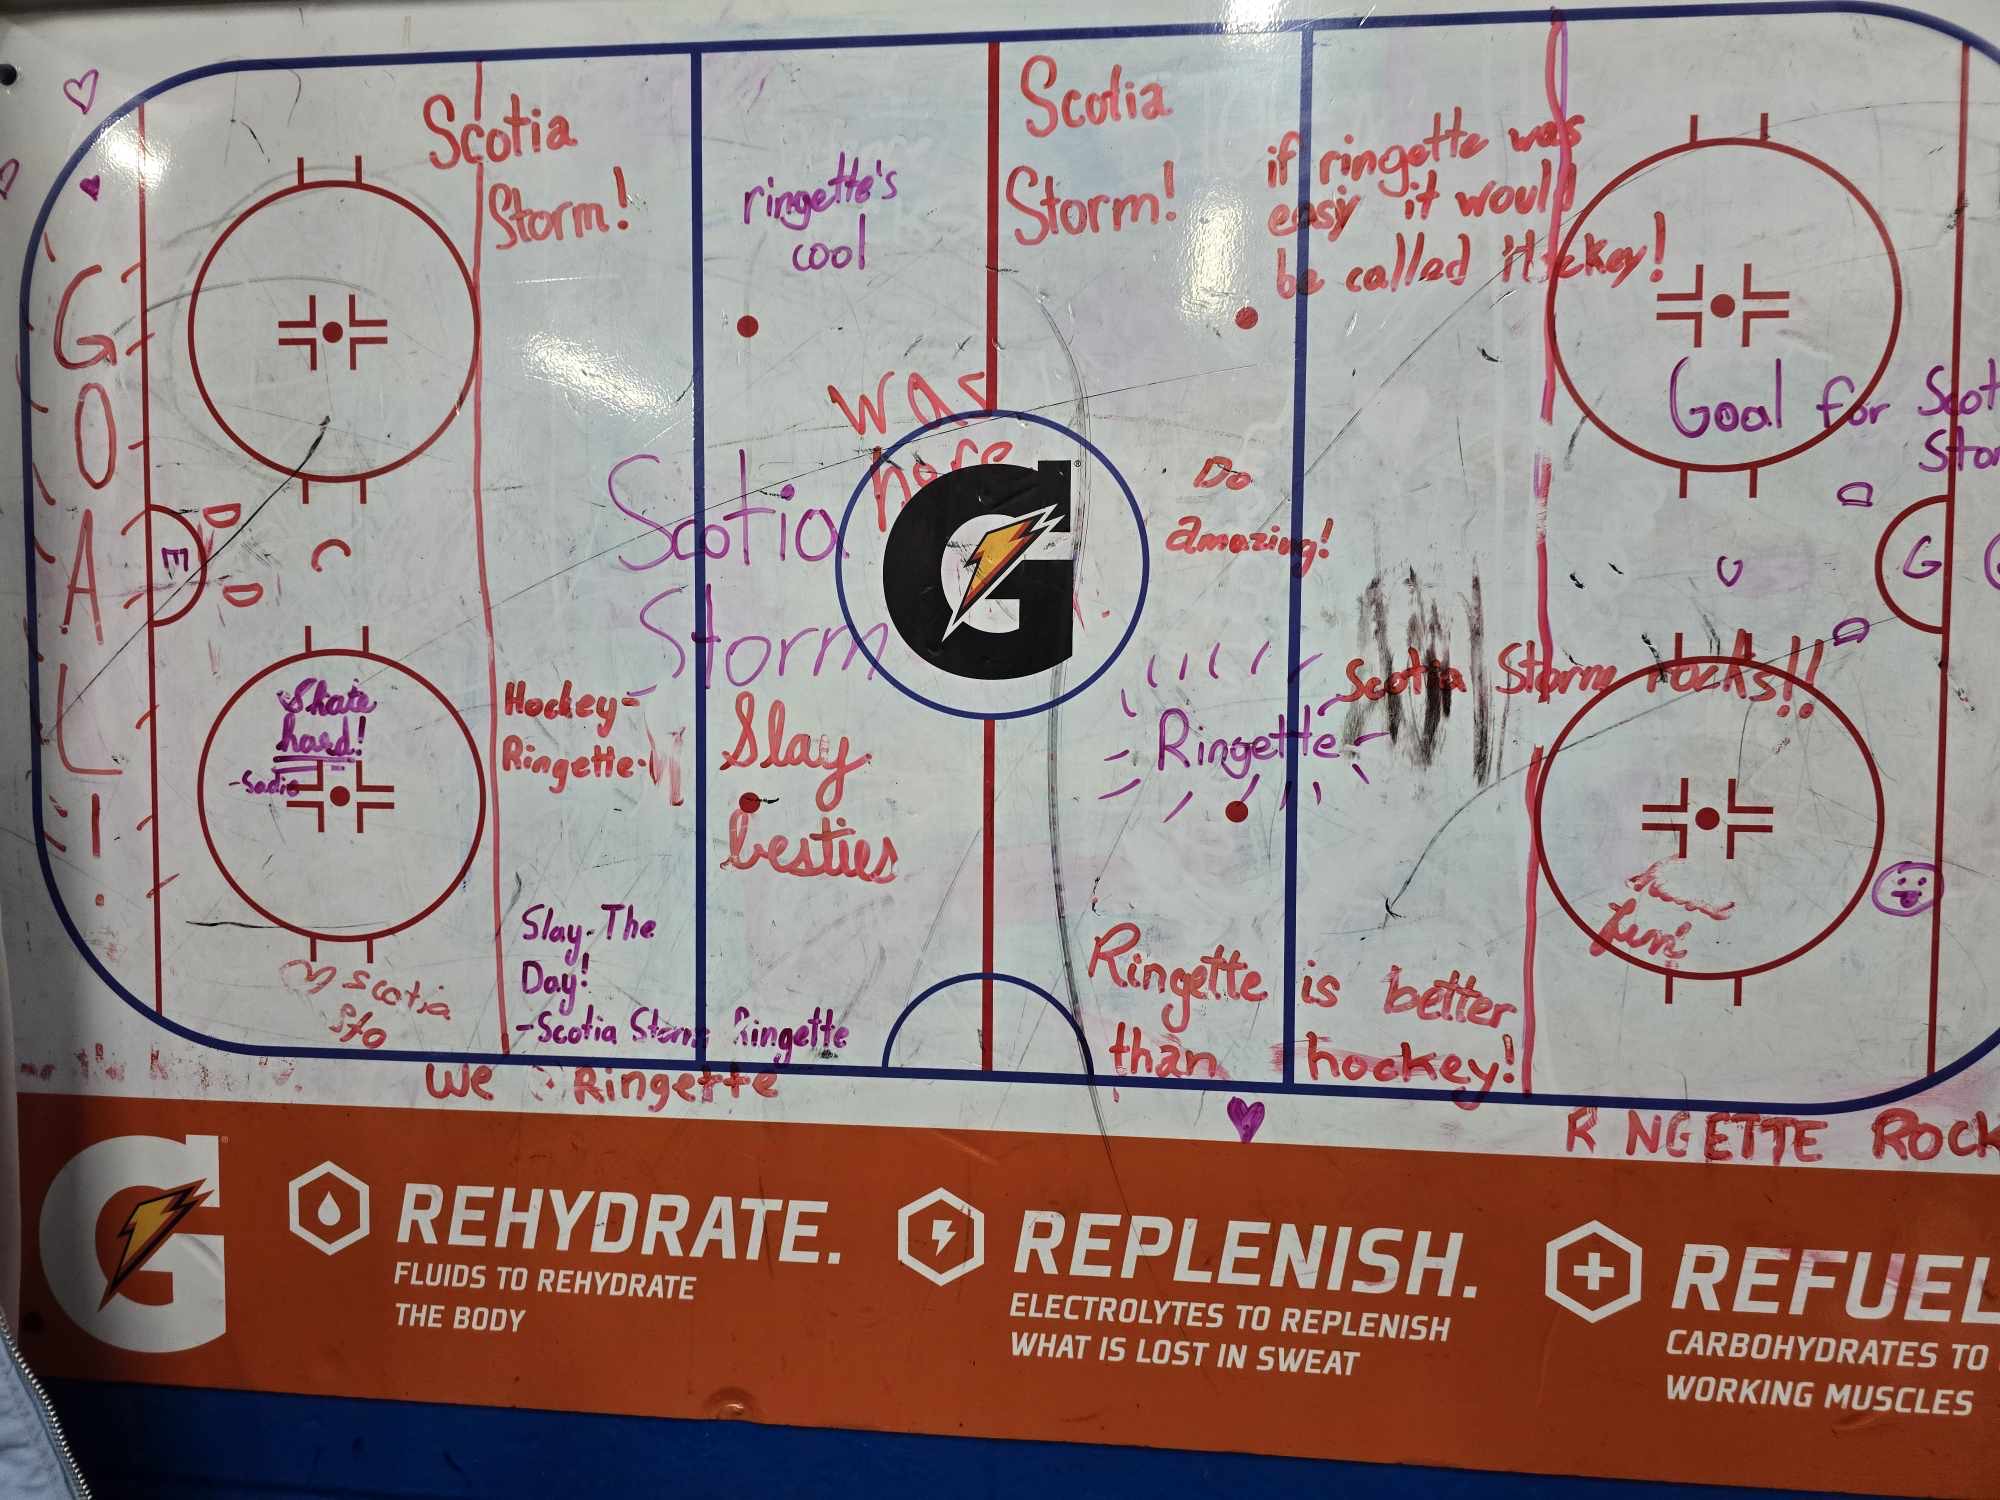 Scotia
Storm!
ringette's
cool
Scotia
Storm!
if ringette was
easy it would
be called Hockey!
GOAL!
E
D
D
C
was
here
Scotia
Storm
G
Do
amazing!
Goal for Scot
Stor
G
Skate
hard!
-Sadie
Hockey-
Ringette-
Slay
besties
Ringette
Scotia Storm rocks!!
have
fun!
Slay-The
Day!
-Scotia Storm Ringette
scotia
sto
Ringette is better
than hockey!
We Ringette
R NGETTE ROCK
G
REHYDRATE.
FLUIDS TO REHYDRATE
THE BODY
REPLENISH.
ELECTROLYTES TO REPLENISH
WHAT IS LOST IN SWEAT
REFUEL
CARBOHYDRATES TO
WORKING MUSCLES